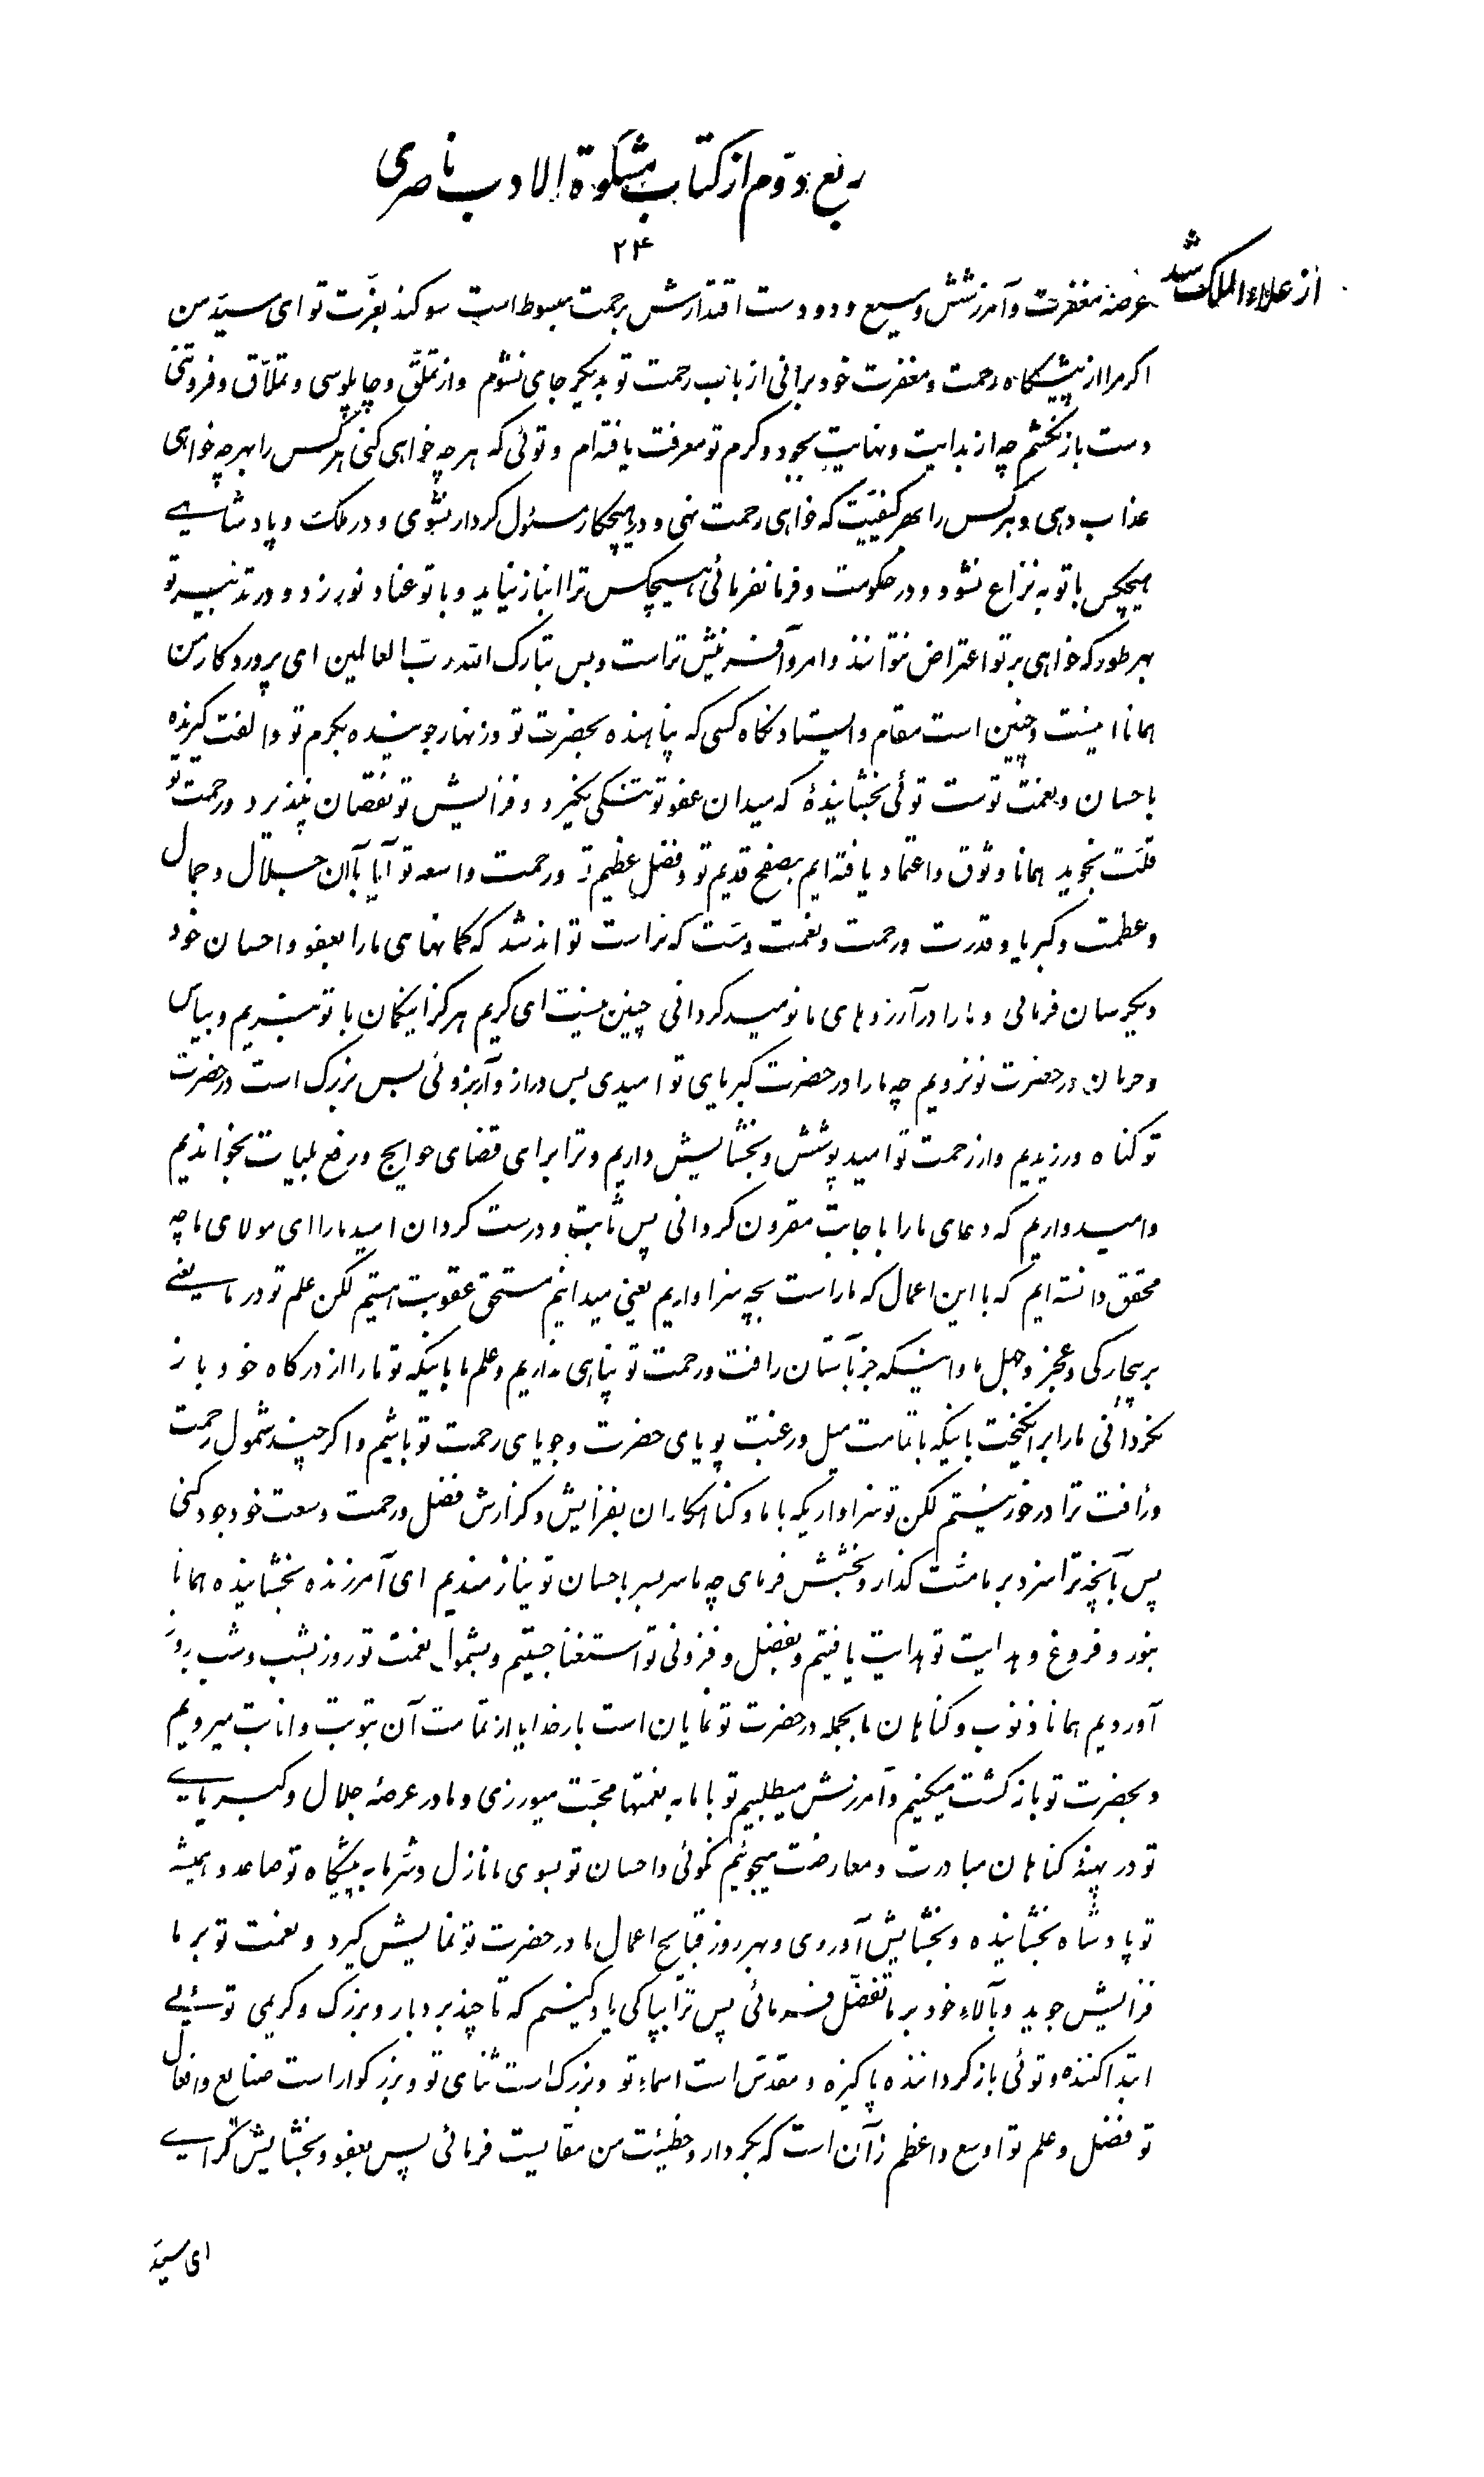 ربع دوّم از کتاب مشکوة الادب ناصری
۲۴
از علاء الملک شد
عرصهٔ مغفرت و آمرزشش وسیع و دو دست اقتدارش برحمت مبسوط است سوکند بعزّت تو ای سیّد من
اکر مرا از پیشکاه رحمت و مغفرت خود برانی از باب رحمت تو بدیکر جای نشوم و از تملّق و چاپلوسی و تملّاق و فروتنی
دست باز نکشم چه از بدایت و نهایت بجود و کرم تو معرفت یافته‌ام و توئی که هر چه خواهی کنی هر کس را بهر چه خواهی
عذاب دهی و هر کس را بهر کیفیّت که خواهی رحمت نهی و در هیچکار مسئول کردار نشوی و در ملک و پادشاهی
هیچکس با تو به نزاع نشود و در حکومت و فرمانفرمائی هیچکس ترا انباز نیاید و با تو عناد نورزد و در تدبیر تو
بهر طور که خواهی بر تو اعتراض نتوانند و امر و آفرینش تراست و بس تبارک الله ربّ العالمین ای پروردکار من
همانا اینست و چنین است مقام و ایستادنکاه کسی که پناهنده بحضرت تو و زنهار جوینده بکرم تو و الفت کیرنده
باحسان و نعمت توست توئی بخشایندهٔ که میدان عفو تو تنکی نکیرد و فزایش تو نقصان نپذیرد و رحمت تو
قلّت نجوید همانا وثوق و اعتماد یافته‌ایم بصفح قدیم تو و فضل عظیم تو و رحمت واسعه تو آیا با آن جلال و جمال
و عظمت و کبریا و قدرت و رحمت و نعمت و منّت که تراست تواند شد که کمانهای ما را بعفو و احسان خود
دیکرسان فرمائی و ما را در آرزوهای ما نومید کردانی چنین نیست ای کریم هرکز اینکمان با تو نبریم و بیاس
و حرمان در حضرت تو نرویم چه ما را در حضرت کبریای تو امیدی بس دراز و آرزوئی بس بزرک است در حضرت
تو کناه ورزیدیم و از رحمت تو امید پوشش و بخشایش داریم و ترا برای قضای حوایج و رفع بلیات بخواندیم
و امیدواریم که دعای ما را باجابت مقرون کردانی پس ثابت و درست کردان امید ما را ای مولای ما چه
محقق دانسته‌ایم که با این اعمال که ما راست بچه سزاواریم یعنی میدانیم مستحق عقوبت هستیم لکن علم تو در ما یعنی
بر بیچارکی و عجز و جهل ما و اینکه جز بآستان رافت و رحمت تو پناهی نداریم و علم ما باینکه تو ما را از درکاه خود باز
نکردانی ما را برانکیخت باینکه با تمامت میل و رغبت پویای حضرت و جویای رحمت تو باشیم و اکر چند شمول رحمت
و رأفت ترا در خور نیستیم لکن تو سزاواریکه با ما و کناهکاران بفزایش و کزارش فضل و رحمت و سعت خود جود کنی
پس بآنچه ترا سزد بر ما منّت کذار و بخشش فرمای چه ما سربسر باحسان تو نیازمندیم ای آمرزنده بخشاینده همانا
بنور و فروغ و هدایت تو هدایت یافتیم و بفضل و فزونی تو استغنا جستیم و بشمول نعمت تو روز بشب و شب بروز
آوردیم همانا ذنوب و کناهان ما بجمله در حضرت تو نمایان است بار خدایا از تمامت آن بتوبت و انابت میرویم
و بحضرت تو بازکشت میکنیم و آمرزش میطلبیم تو با ما به نعمتها محبّت میورزی و ما در عرصهٔ جلال و کبریای
تو در پهنهٔ کناهان مبادرت و معارضت میجوئیم نکوئی و احسان تو بسوی ما نازل و شر ما به پیشکاه تو صاعد و همیشه
تو پادشاه بخشاینده و بخشایش آوردی و بهر روز قبایح اعمال ما در حضرت تو نمایش کیرد و نعمت تو بر ما
فزایش جوید و بآلاء خود بر ما تفضّل فرمائی پس ترا بپاکی یاد کنیم که تا چند بردبار و بزرک و کریمی توئی
ابتدا کننده و توئی باز کرداننده پاکیزه و مقدّس است اسماء تو و بزرک است ثنای تو و بزرکوار است صنایع و افعال
تو فضل و علم تو اوسع و اعظم از آن است که بکردار و خطیئت من مقایست فرمائی پس بعفو و بخشایش کرای
ای سیّد